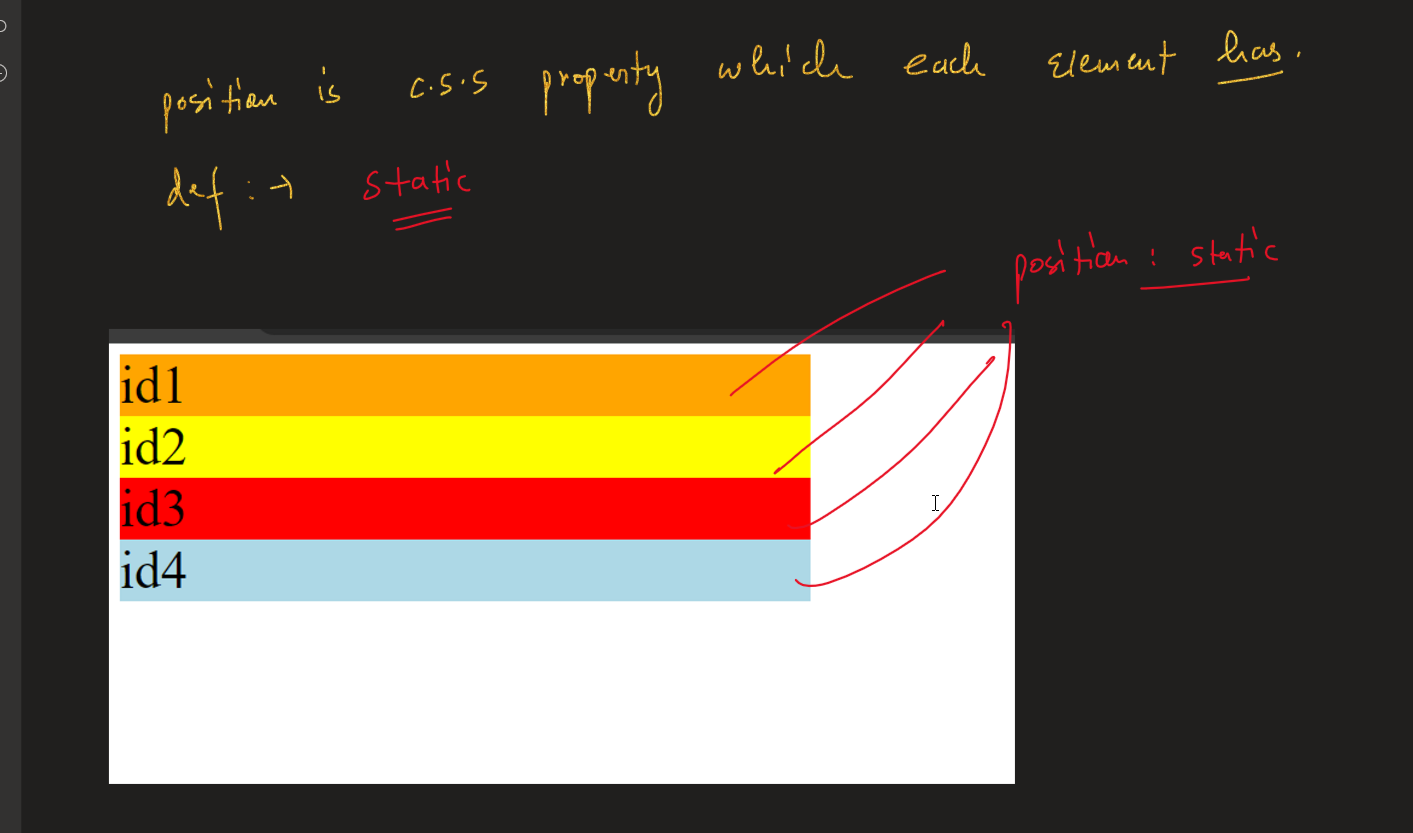 position is c.s.s property which each Element has.
def : → static
position : static
id1
id2
id3
id4